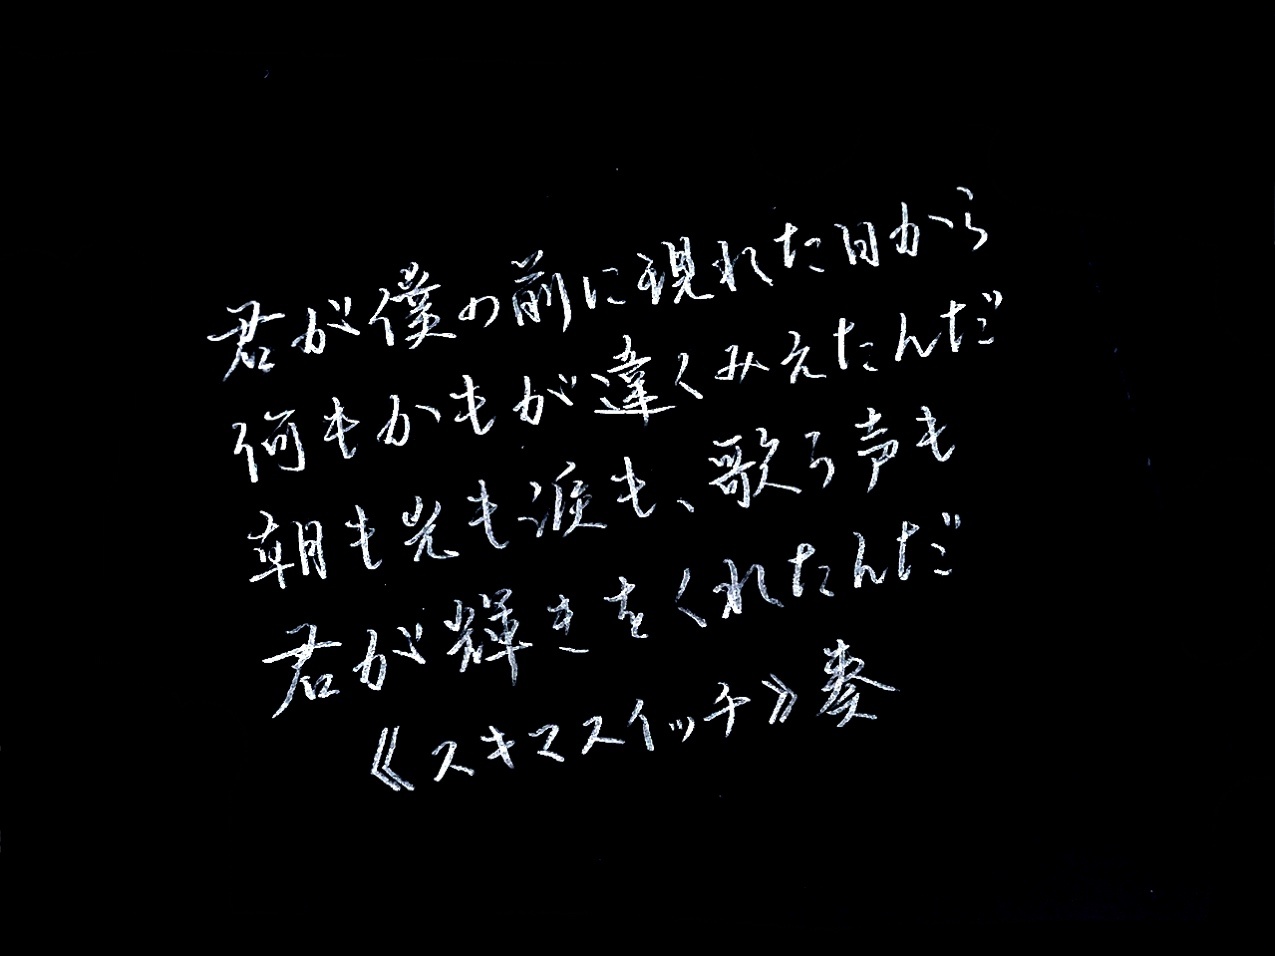 君が僕の前に現れた日から
何もかもが違くみえたんだ
朝も光も涙も、歌う声も
君が輝きをくれたんだ
《スキマスイッチ》奏